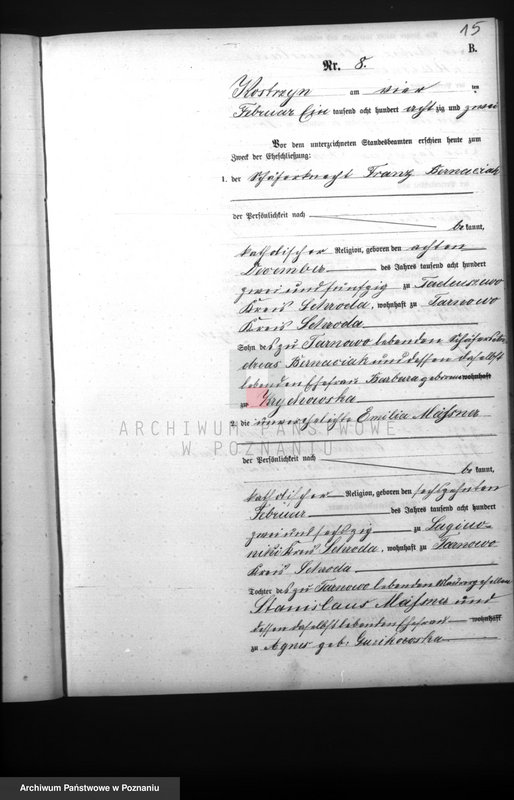 15
B.
Nr. 8.
Kostrzyn am vier ten
Februar Ein tausend acht hundert achtzig und zwei
Vor dem unterzeichneten Standesbeamten erschien heute zum
Zweck der Eheschließung:
1. der Schäferknecht Franz Biernaciak
der Persönlichkeit nach
be kannt,
katholischer Religion, geboren den achten
December des Jahres tausend acht hundert
zwei und fünfzig zu Tadeuszewo
Kreis Schroda, wohnhaft zu Tarnowo
Kreis Schroda
Sohn des zu Tarnowo lebenden Schäfers
Biernaciak und dessen daselbst
lebenden Ehefrau Barbara geborene wohnhaft
zu
2. die unverehelichte Emilia Mässner
ARCHIWUM PAŃSTWOWE
W POZNANIU
der Persönlichkeit nach
be kannt,
katholischer Religion, geboren den sechszehnten
Februar des Jahres tausend acht hundert
zwei und sechszig zu
Kreis Schroda, wohnhaft zu Tarnowo
Kreis Schroda
Tochter des zu Tarnowo lebenden Maurergesellen
Stanislaus Mässner und
dessen daselbst lebenden Ehefrau wohnhaft
zu Agnes geb.
Archiwum Państwowe w Poznaniu